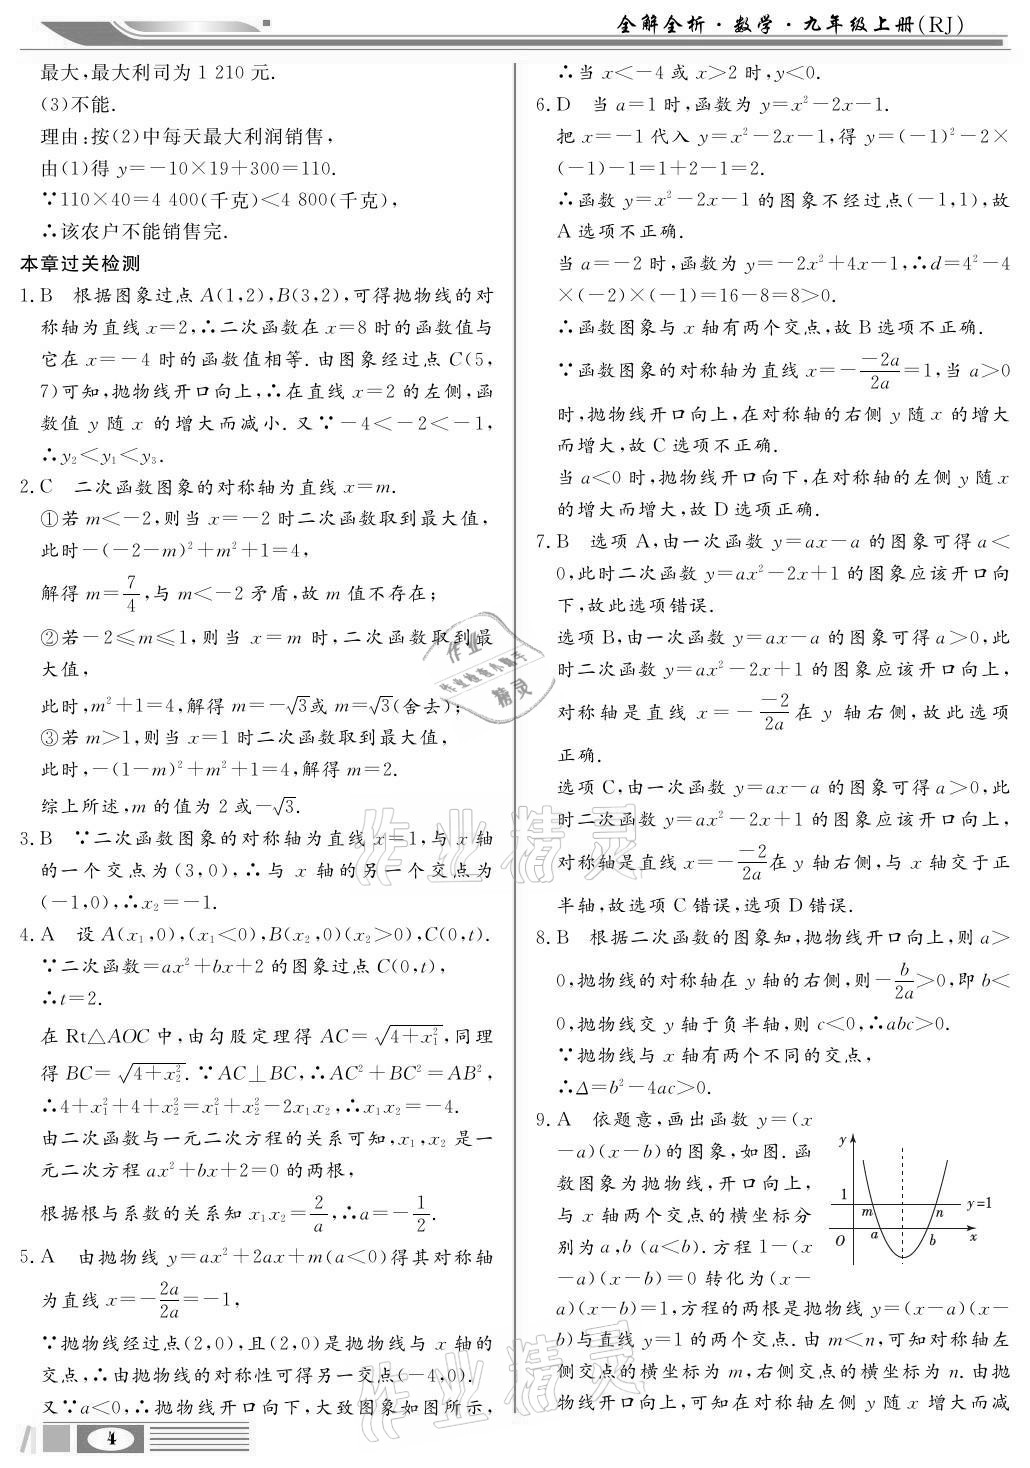 全解全析·数学·九年级上册(RJ)
最大,最大利司为1 210元.
(3)不能.
理由:按(2)中每天最大利润销售,
由(1)得 y=-10×19+300=110.
∵110×40=4 400(千克)<4 800(千克),
∴该农户不能销售完.
本章过关检测
1. B 根据图象过点 A(1,2),B(3,2),可得抛物线的对
称轴为直线 x=2,∴二次函数在 x=8 时的函数值与
它在 x=-4 时的函数值相等. 由图象经过点 C(5,
7)可知,抛物线开口向上,∴在直线 x=2 的左侧,函
数值 y 随 x 的增大而减小. 又∵-4<-2<-1,
∴y₂<y₁<y₃.
2. C 二次函数图象的对称轴为直线 x=m.
①若 m<-2,则当 x=-2 时二次函数取到最大值,
此时-(-2-m)²+m²+1=4,
解得 m=7/4,与 m<-2 矛盾,故 m 值不存在;
②若-2≤m≤1,则当 x=m 时,二次函数取到最
大值,
此时,m²+1=4,解得 m=-√3或 m=√3(舍去);
③若 m>1,则当 x=1 时二次函数取到最大值,
此时,-(1-m)²+m²+1=4,解得 m=2.
综上所述,m 的值为 2 或-√3.
3. B ∵二次函数图象的对称轴为直线 x=1,与 x 轴
的一个交点为(3,0),∴与 x 轴的另一个交点为
(-1,0),∴x₂=-1.
4. A 设 A(x₁,0),(x₁<0),B(x₂,0)(x₂>0),C(0,t).
∵二次函数=ax²+bx+2 的图象过点 C(0,t),
∴t=2.
在 Rt△AOC 中,由勾股定理得 AC=√(4+x₁²),同理
得 BC=√(4+x₂²).∵AC⊥BC,∴AC²+BC²=AB²,
∴4+x₁²+4+x₂²=x₁²+x₂²-2x₁x₂,∴x₁x₂=-4.
由二次函数与一元二次方程的关系可知,x₁,x₂ 是一
元二次方程 ax²+bx+2=0 的两根,
根据根与系数的关系知 x₁x₂=2/a,∴a=-1/2.
5. A 由抛物线 y=ax²+2ax+m(a<0)得其对称轴
为直线 x=-2a/2a=-1,
∵抛物线经过点(2,0),且(2,0)是抛物线与 x 轴的
交点,∴由抛物线的对称性可得另一交点(-4,0).
又∵a<0,∴抛物线开口向下,大致图象如图所示,
∴当 x<-4 或 x>2 时,y<0.
6. D 当 a=1 时,函数为 y=x²-2x-1.
把 x=-1 代入 y=x²-2x-1,得 y=(-1)²-2×
(-1)-1=1+2-1=2.
∴函数 y=x²-2x-1 的图象不经过点(-1,1),故
A 选项不正确.
当 a=-2 时,函数为 y=-2x²+4x-1,∴d=4²-4
×(-2)×(-1)=16-8=8>0.
∴函数图象与 x 轴有两个交点,故 B 选项不正确.
∵函数图象的对称轴为直线 x=--2a/2a=1,当 a>0
时,抛物线开口向上,在对称轴的右侧 y 随 x 的增大
而增大,故 C 选项不正确.
当 a<0 时,抛物线开口向下,在对称轴的左侧 y 随 x
的增大而增大,故 D 选项正确.
7. B 选项 A,由一次函数 y=ax-a 的图象可得 a<
0,此时二次函数 y=ax²-2x+1 的图象应该开口向
下,故此选项错误.
选项 B,由一次函数 y=ax-a 的图象可得 a>0,此
时二次函数 y=ax²-2x+1 的图象应该开口向上,
对称轴是直线 x=--2/2a 在 y 轴右侧,故此选项
正确.
选项 C,由一次函数 y=ax-a 的图象可得 a>0,此
时二次函数 y=ax²-2x+1 的图象应该开口向上,
对称轴是直线 x=--2/2a 在 y 轴右侧,与 x 轴交于正
半轴,故选项 C 错误,选项 D 错误.
8. B 根据二次函数的图象知,抛物线开口向上,则 a>
0,抛物线的对称轴在 y 轴的右侧,则-b/2a>0,即 b<
0,抛物线交 y 轴于负半轴,则 c<0,∴abc>0.
∵抛物线与 x 轴有两个不同的交点,
∴Δ=b²-4ac>0.
9. A 依题意,画出函数 y=(x
-a)(x-b)的图象,如图. 函
数图象为抛物线,开口向上,
与 x 轴两个交点的横坐标分
别为 a,b (a<b). 方程 1-(x
-a)(x-b)=0 转化为(x-
a)(x-b)=1,方程的两根是抛物线 y=(x-a)(x-
b)与直线 y=1 的两个交点. 由 m<n,可知对称轴左
侧交点的横坐标为 m,右侧交点的横坐标为 n. 由抛
物线开口向上,可知在对称轴左侧 y 随 x 增大而减
y
1
m
n
y=1
O
a
b
x
作业
作业检查小助手
精灵
作业精灵
作业精灵
4